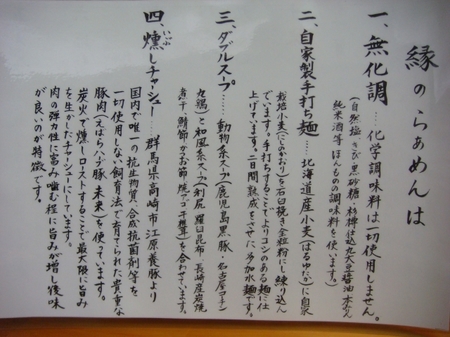 縁のらぁめんは
一、無化調……化学調味料は一切使用しません。
(自然塩・きび黒砂糖・杉樽仕込丸大豆醤油・本みりん
純米酒等ほんものの調味料を使います。
二、自家製手打ち麺……北海道産小麦(はるゆたか)に自家
栽培小麦(にしのかおり)を石臼挽き全粒粉にし練り込ん
でいます。手打ちすることでよりコシのある麺に仕
上げています。二日間熟成をへて、多加水麺です。
三、ダブルスープ……動物系スープ(鹿児島黒豚・名古屋コーチン
丸鶏)と和風系スープ(利尻・羅臼昆布・長崎産炭焼
煮干・鯖節・かつお節・焼アゴ・干椎茸)を合わせています。
四、燻しチャーシュー……群馬県高崎市江原養豚より
いぶ
国内で唯一の抗生物質、合成抗菌剤等を
一切使用しない飼育法で育てられた貴重な
豚肉(えばらハーブ豚・未来)を使っています。
炭火で燻しローストすることで最大限に旨み
を生かしたチャーシューにしています。
肉の弾力性に富み噛む程に旨みが増し後味
が良いのが特徴です。